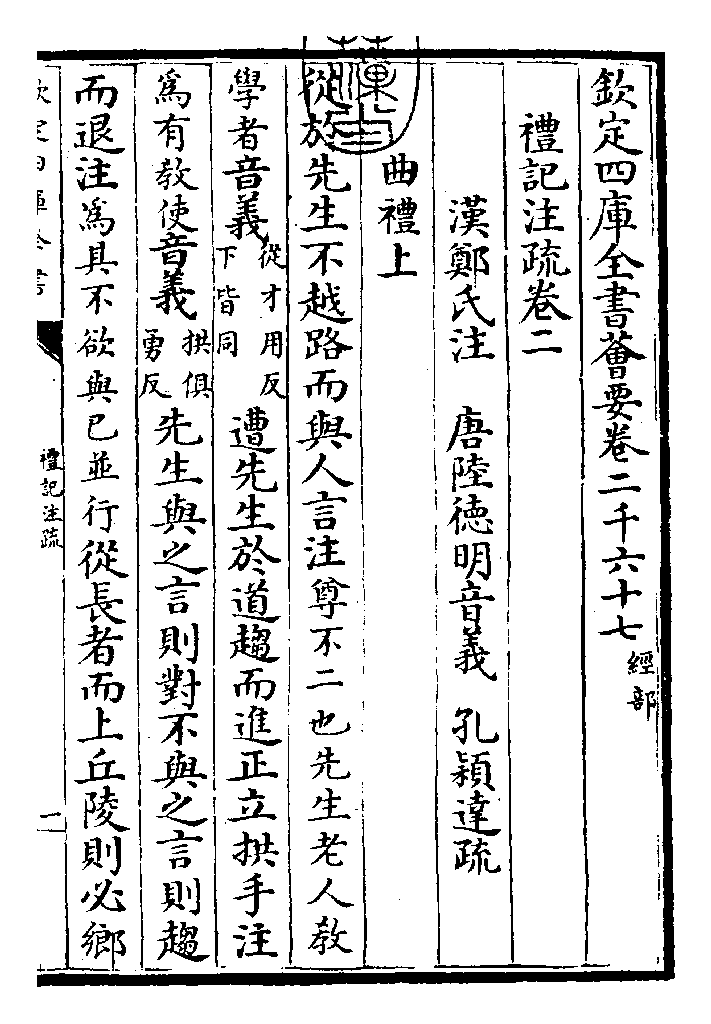 欽定四庫全書薈要卷二千六十七經部
禮記注疏卷二
漢鄭氏注 唐陸德明音義 孔穎達疏
曲禮上
從於先生不越路而與人言注尊不二也先生老人教
學者音義從才用反下皆同遭先生於道趨而進正立拱手注
為有教使音義拱俱勇反先生與之言則對不與之言則趨
而退注為其不欲與已並行從長者而上丘陵則必鄉
欽定四庫全書
禮記注疏
一